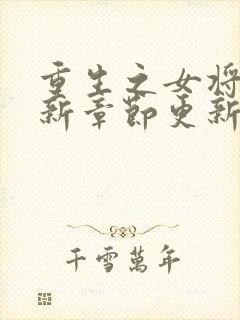 重生之女将
新章節更新
千雪萬年